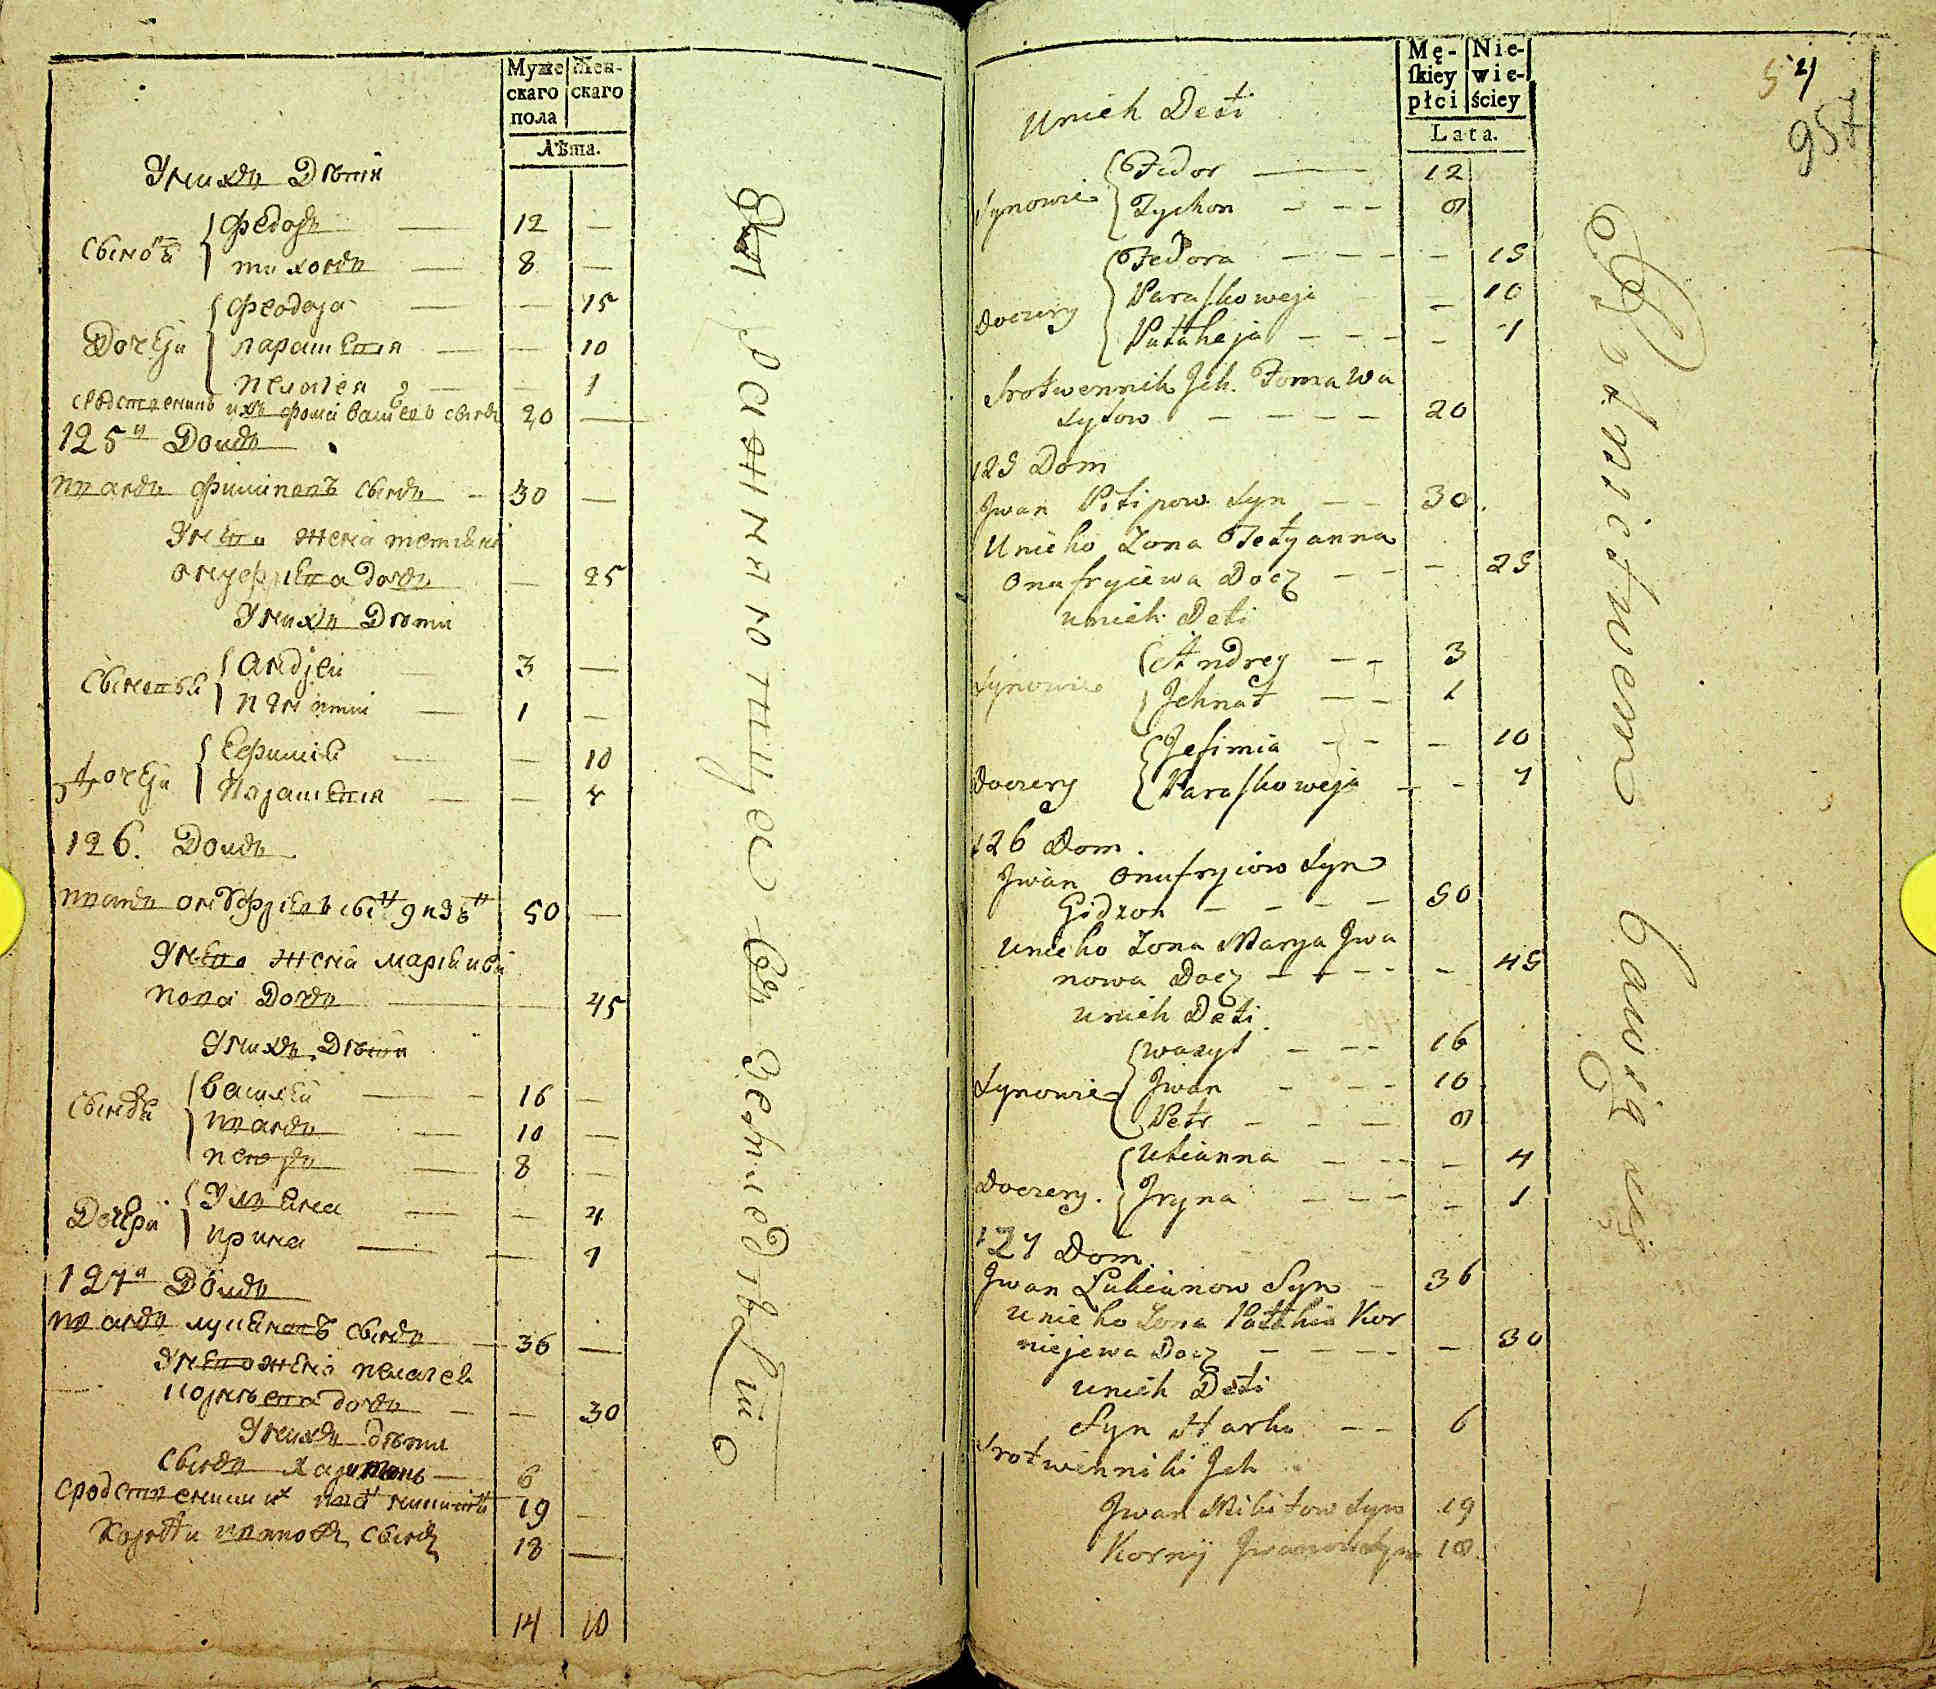 Муже
скаго
пола
Жен-
скаго
Лѣта.
Унихъ Дѣти
Сынови
Федоръ — 12 —
тихонъ — 8 —
Дочери
Феодора — — 15
парашкевия — — 10
пелагея — — 1
сродственикъ ихъ фома василевъ сынъ 20 —
125й Домъ
иванъ филиповъ сынъ — 30 —
Унего жена тетиана
онуфриева дочь — 25
Унихъ Дѣти
Сыновьи
андрей — 3 —
игнатий — 1 —
Дочери
Ефимия — — 10
Парашкевия — —
126. Домъ
иванъ онуфриевъ сынъ 50 —
Унего жена мария ива
нова Дочь — — 45
Унихъ Дѣти
Сынови
василий — 16 —
иванъ — 10 —
петръ — 8 —
Дочери
Улияна — — 4
ирина — — 1
127й Домъ
иванъ лукяновъ сынъ — 36 —
Унего жена пелагея
корнѣева дочь — — 30
Унихъ дѣти
Сынъ харитонъ — 6
сродственики ихъ иванъ 19 —
Корнѣй ивановъ сынъ 18 —
14 10
Mę-
skiey
płci
Nie-
wie-
ściey
Lata.
54
957
Unich Deti
Synowie
Fedor — 12
Tychon - - - 8
Doczery
Fedora - - - - - 15
Paraskoweja - 10
Pałaheja - - - - 1
Srotwennik Jch. Foma Wa
sylow - - - - 20
125 Dom
Jwan Pilipow Syn - - 30
Unieho Zona Tetyanna
Onufryiewa Docz - - - 25
unich Deti
Synowie
Andrey - - 3
Jehnat - - 1
Doczery
Jefimia - - - 10
Paraskoweja - -
126 Dom.
Jwan Onufryiow Syn
- - - - 50
Unieho Zona Marya Jwa
nowa Docz - - - - - 45
unich Deti
Synowie
Wasyl - - - 16
Jwan - - - 10
Petr - - - 8
Doczery.
Ulianna - - - - 4
Jryna - - - - 1
127 Dom.
Jwan Lukianow Syn - 36
Unieho Zona Pałahia Kor
niejewa Docz - - - - - 30
unich Deti
Syn Harko - - 6
Srotwenniki Jch
Jwan Mikitow Syn 19
Korniy Jwanow Syn 18